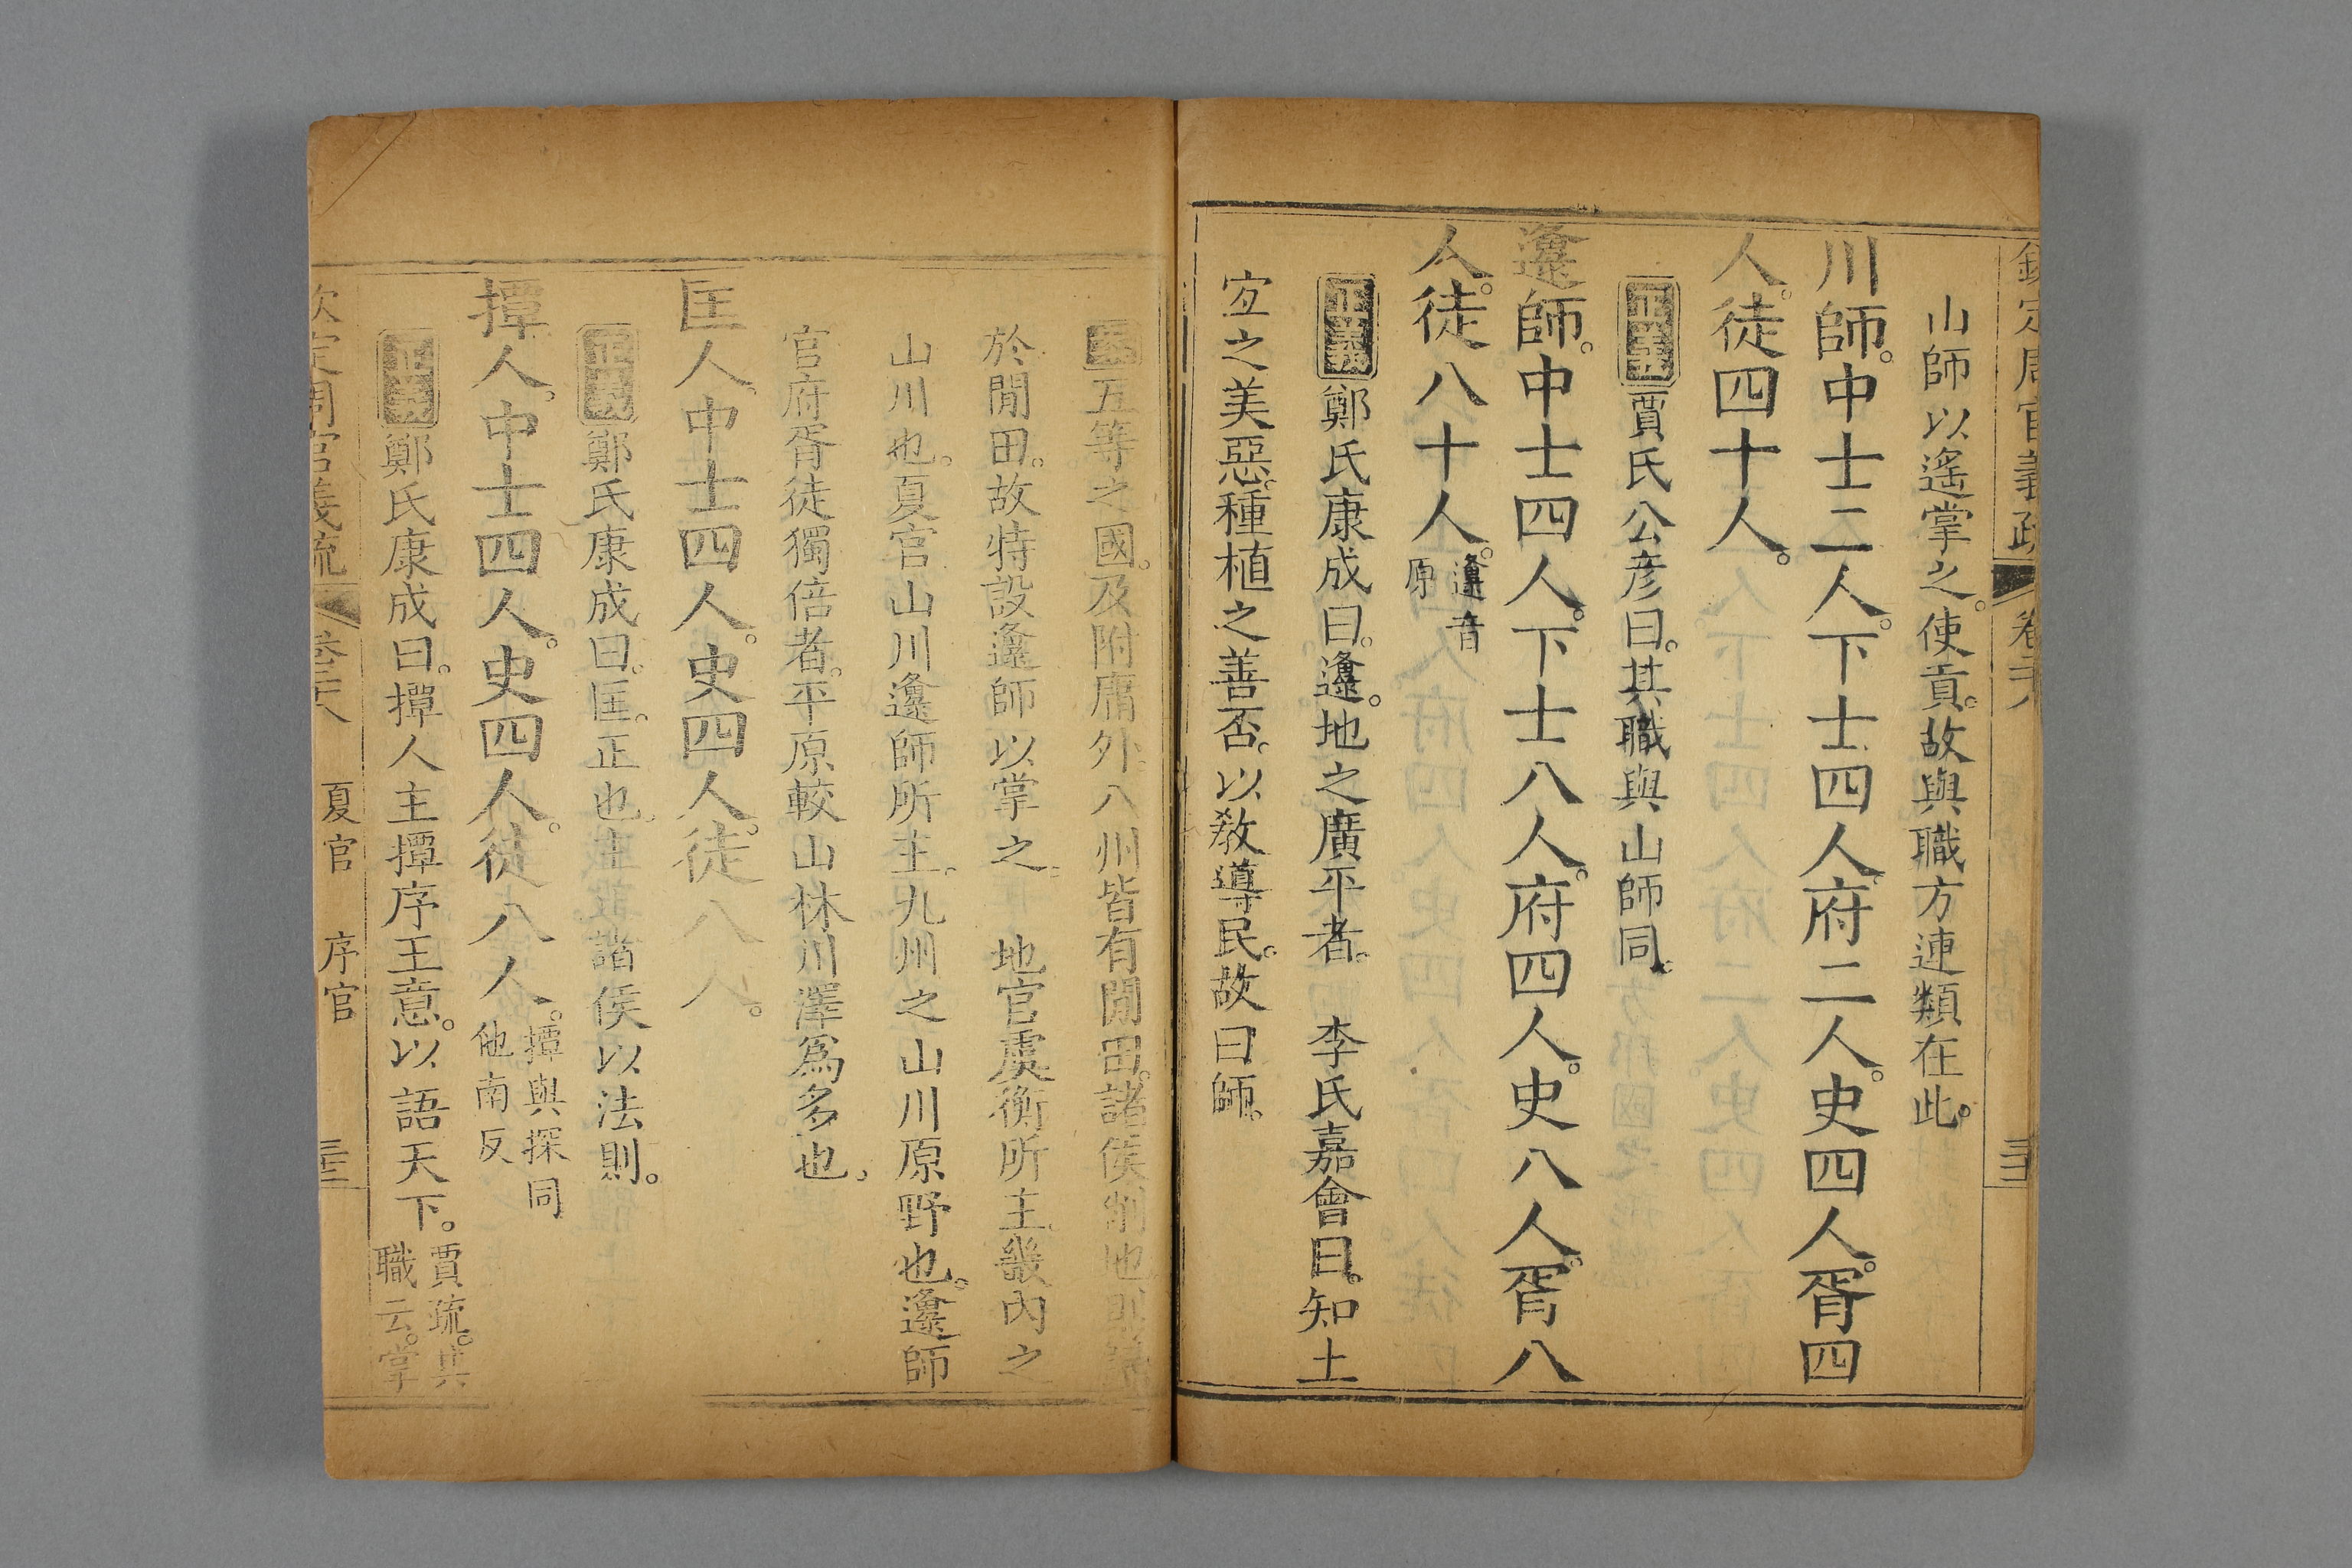 欽定周官義疏 卷二十八 三十二
山師以遙掌之。使貢。故與職方連類在此。
川師。中士二人。下士四人。府二人。史四人。胥四
人。徒四十人。
正義 賈氏公彦曰。其職與山師同。
邍師。中士四人。下士八人。府四人。史八人。胥八
人。徒八十人。邍音原
正義 鄭氏康成曰。邍。地之廣平者。 李氏嘉會曰。知土
宜之美惡。種植之善否。以敎導民。故曰師。
五等之國。及附庸外。八州皆有閒田。諸侯削地則歸
於閒田。故特設邍師以掌之。 地官虞衡所主。畿內之
山川也。夏官山川邍師所主。九州之山川原野也。邍師
官府胥徒獨倍者。平原較山林川澤爲多也。
匡人。中士四人。史四人。徒八人。
正義 鄭氏康成曰。匡。正也。主正諸侯以法則。
撢人。中士四人。史四人。徒八人。撢與探同他南反
正義 鄭氏康成曰。撢人主撢序王意。以語天下。賈疏。其職云。掌
欽定周官義疏 卷二十八 夏官 序官 三十三